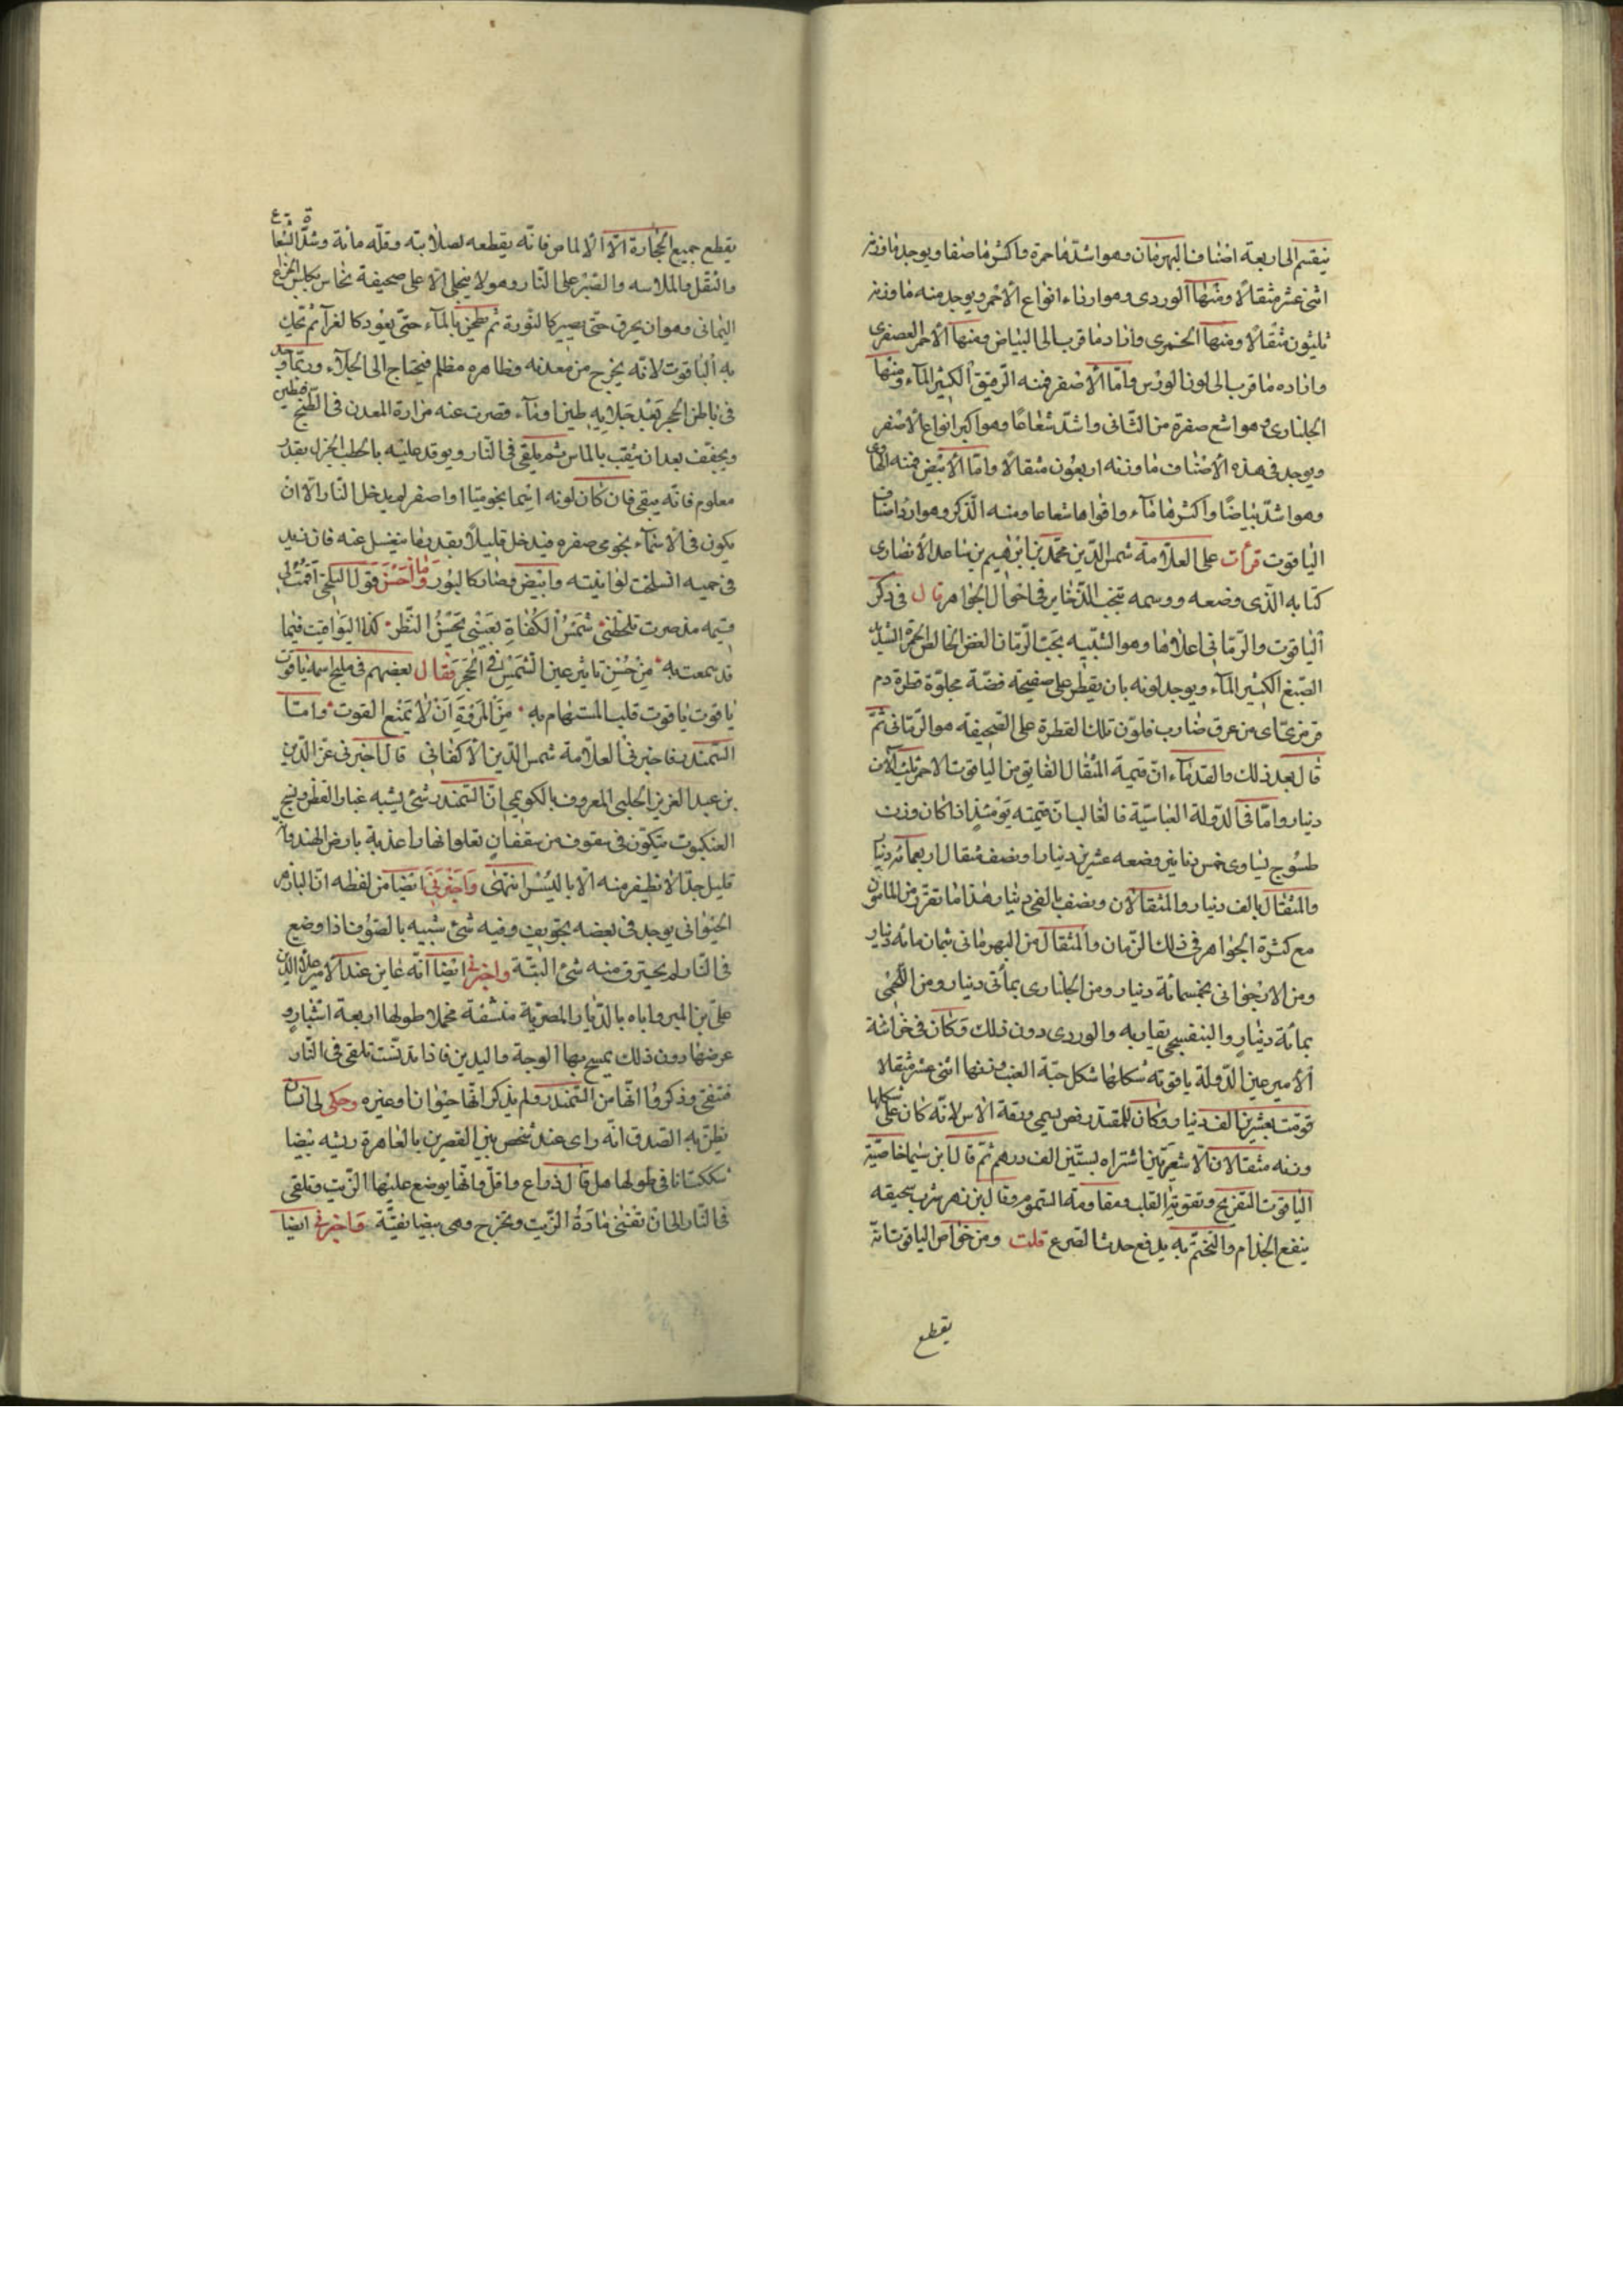 ينقسم الى اربعة اصناف البهرمان وهو اشدّها حمرة واكثرها صفا ويوجد ما وزنه
اثنى عشر مثقالًا ومنها الوردى وهو ارداء انواع الاحمر ويوجد منه ما وزنه
ثلثون مثقالًا ومنها الخمرى وازاد ما قرب الى البياض ومنها الاحمر العصفرى
وازاده ما قرب الى لون الورس وامّا الاصفر فمنه الرقيق الكثير المآء ومنها
الجلنارى وهو اشبع صفرة من الثانى واشدّ شعاعًا وهو اكبر انواع الاصفر
ويوجد فى هذه الاصناف ما وزنه اربعون مثقالًا وامّا الابيض فمنه المهاوى
وهو اشدّ بياضًا واكثرها مآء واقواها شعاعا ومنه الذكر وهو اردا اصناف
الياقوت قرأت على العلّامة شمس الدّين محمّد بن ابرٰهيم بن ساعد الانصارى
كتابه الّذى وضعه ووسمه بنخب الذّخاير فى احوال الجواهر قال فى ذكر
الياقوت والرّمانى اعلاها وهو الشّبيه بحبّ الرّمان الغض الخالص الحمرة الشديد
الصّبغ الكثير المآء ويوجد لونه بان يقطر على صفيحة فضّة مجلوّة قطرة دم
قرمزىّ اى من عرق ضارب فلون تلك القطرة على الصّحيفة هو الرّمّانى ثمّ
قال بعد ذلك والقدمآء انّ قيمة المثقال الفايق من الياقوت الاحمر ثلثة آلاف
دينار وامّا فى الدّولة العباسيّة فالغالب انّ قيمته يومئذٍ اذا كان وزنه
طسّوج يساوى خمس دنانير وضعفه عشرين دينارا ونصف مثقال اربعمائة دينار
والمثقال بالف دينار والمثقالان ونصف بالفى دينار هذا ما تقرّر زمن المامون
مع كثرة الجواهر فى ذلك الزّمان والمثقال من البهرمانى بثمان مائة دينار
ومن الارجوانى بخمسمائة دينار ومن الجلنارى بمأتى دينار ومن اللحمى
بمائة دينارٍ والبنفسجى يقاربه والوردى دون ذلك وكان فى خزانة
الامير عين الدّولة ياقوته شكلها شكل حبّة العنب وزنها اثنى عشر مثقالا
قوّمت بعشرين الف دينار وكان للمقتدر فص يسمى ورقة الاس لانّه كان على شكلها
وزنه مثقالان الّا شعيرتين اشتراه بستّين الف درهم ثمّ قال ابن سينا خاصّية
الياقوت التفريح وتقوية القلب ومقاومة السّموم وقال بن زهر شرب سحيقه
ينفع الجذام والتختّم به يدفع حدث الصّرع قلت ومن خواص الياقوت انّه
يقطع
يقطع جميع الحجارة الّا الالماص فانّه يقطعه لصلابته وقلّه مائة وشدّة الشعاع
والثقل والملاسه والصّبر على النّار وهو لا ينجلى الّا على صحيفة نحاس بكلس الجزع
اليمانى وهو ان يحرق حتّى يصير كالنّورة ثم يطحن بالمآء حتّى يعود كالغرآ ثم تحكّ
به الياقوت لانّه يخرج من معدنه وظاهره مظلم فيحتاج الى الجلآء وربّما وجد
فى باطن الحجر بعد جلايه طينا ومآء قصرت عنه حرارة المعدن فى الطّبخ فيطين
ويجفف بعد ان يثقب بالماس ثم يلقى فى النّار ويوقد عليه بالحطب الجزل بقدر
معلوم فانّه يبقى فان كان لونه اسمانجونيّا او اصفر لم يدخل النّار الّا ان
يكون فى الاسمآء نجونى صفره فيدخل قليلًا بقدر ما ينغسل عنه فان زيد
فى حميه انسلخت لوانيته وابيض فصار كالبلور وما احسن قول البلخى اقمت لى
قيمه مذ صرت تلحظنى شمس الكفاة بعينى محسن النّظر كذا اليواقيت فيما
قد سمعت به من حسن تاثير عين الشّمس فى الحجر فقال بعضهم فى مليح اسمه ياقوت
ياقوت ياقوت قلب المستهام به من المروّة ان لا تمنع القوت وامّا
السّمندر فاخبر فى العلّامة شمس الدّين الاكفانى قال اخبرنى عزّ الدّين
بن عبد العزيز الحلبى المعروف بالكويمى انّ السّمندر شئ يشبه غبار القطن ونسج
العنكبوت يتكوّن فى سقوف من سقفان تعلو انهارا عذبة بارض الهند وانّه
قليل جدّا لا يظفر منه الّا باليسير انتهى واخبرنى ايضا من لفظه انّ البازهر
الحيوانى يوجد فى بعضه تجويف وفيه شئ شبيه بالصّوف اذا وضع
فى النّار لم يحترق منه شئ البتّة واخبرنى ايضا انّه عاين عند الامير علاء الدّين
علىّ بن المير واباه بالدّيار المصريّة منشفة مخملا طولها اربعة اشبار و
عرضها دون ذلك يمسح بها الوجه واليدين فاذا تدنّست تلقى فى النّار
فتنقى وذكروا انّها من السّمندر ولم يذكر انّها حيوان او غيره وحكى لى انسان
يظنّ به الصّدق انّه راى عند شخص بين القصرين بالقاهرة ريشه بيضا
ككتانا فى طولها هل قال ذراع واقلّ وانّها يوضع عليها الزّيت وتلقى
فى النّار الى ان تفنى مادّة الزّيت وتخرج وهى بيضا نقيّة واخبرنى ايضا